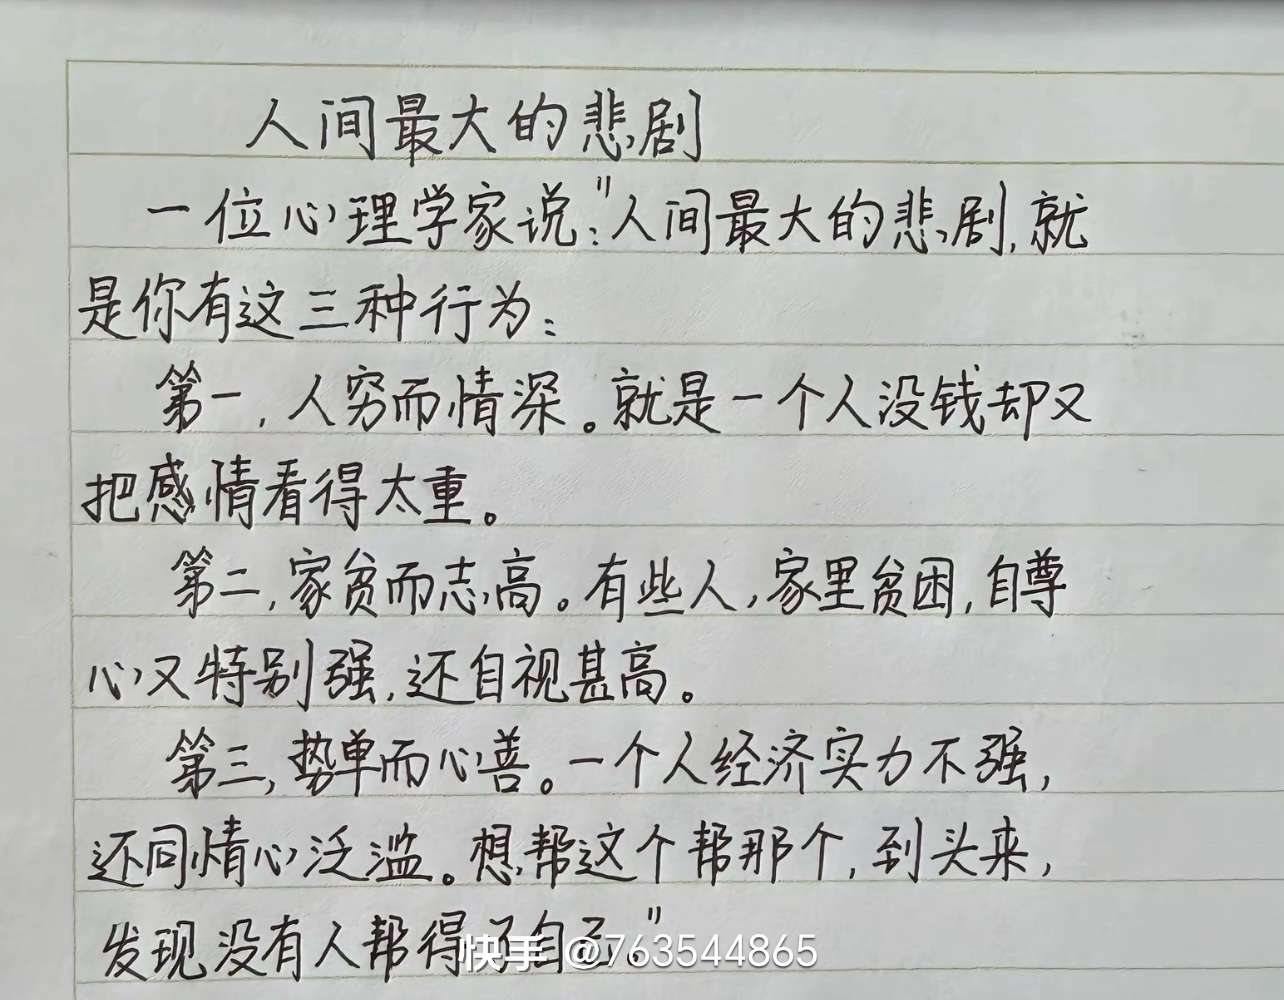 人间最大的悲剧
一位心理学家说:"人间最大的悲剧,就
是你有这三种行为:
第一,人穷而情深。就是一个人没钱却又
把感情看得太重。
第二,家贫而志高。有些人,家里贫困,自尊
心又特别强,还自视甚高。
第三,势单而心善。一个人经济实力不强,
还同情心泛滥。想帮这个帮那个,到头来,
发现没有人帮得了自己。"
快手 @763544865